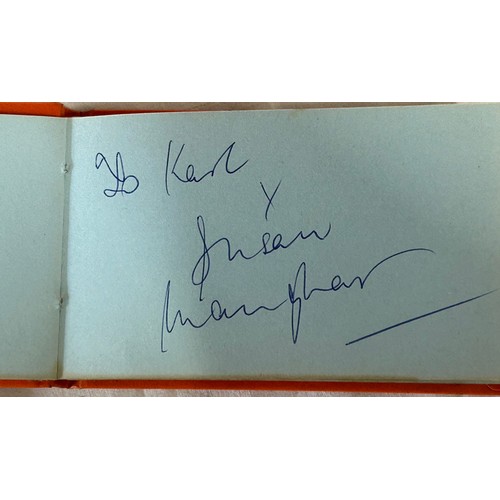 To Karl
x
Susan
Maughan